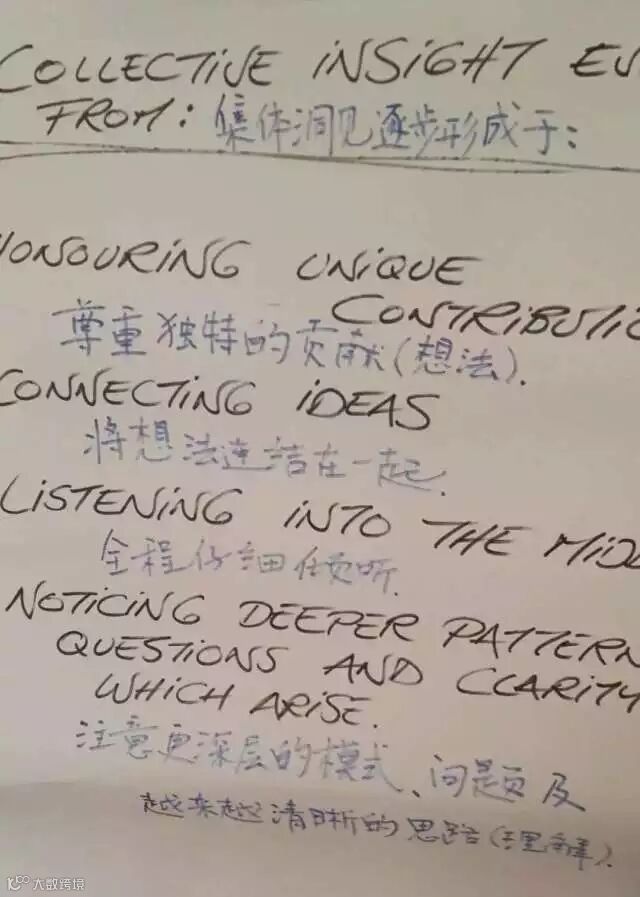 COLLECTIVE INSIGHT EV
FROM: 集体洞见逐步形成于:
HONOURING UNIQUE
CONTRIBUTIO
尊重独特的贡献(想法).
CONNECTING IDEAS
将想法连结在一起.
LISTENING INTO THE MIDD
全程仔细倾听.
NOTICING DEEPER PATTERN
QUESTIONS AND CLARITY
WHICH ARISE.
注意更深层的模式、问题及
越来越清晰的思路(理解).
大数跨境